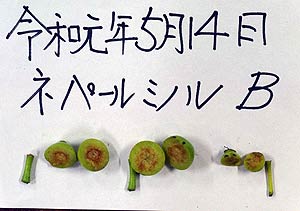 令和元年5月14日
ネパールミノル B